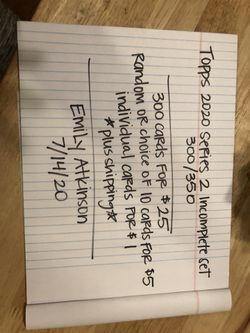 Topps 2020 Series 2 Incomplete set
300/350
300 cards for $25
Random or choice of 10 cards for $5
individual cards for $1
*plus shipping*
Emily Atkinson
7/14/20